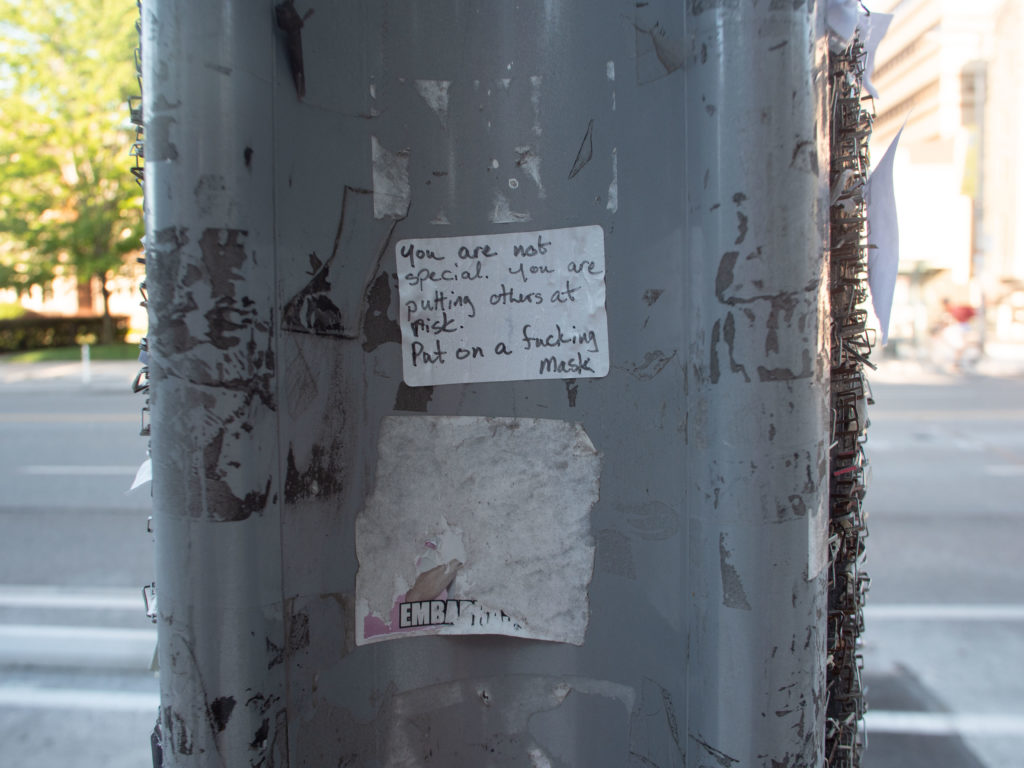 You are not
special. You are
putting others at
risk.
Put on a fucking
Mask